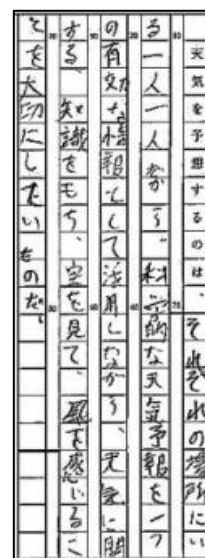 天気を予想するのは、それぞれの場所にい
る一人一人だろう。科学的な天気予報を一つ
の有効な情報として活用しながら、天気に関
する、知識をもち、空を見て、風を感じるこ
とを大切にしたいものだ。